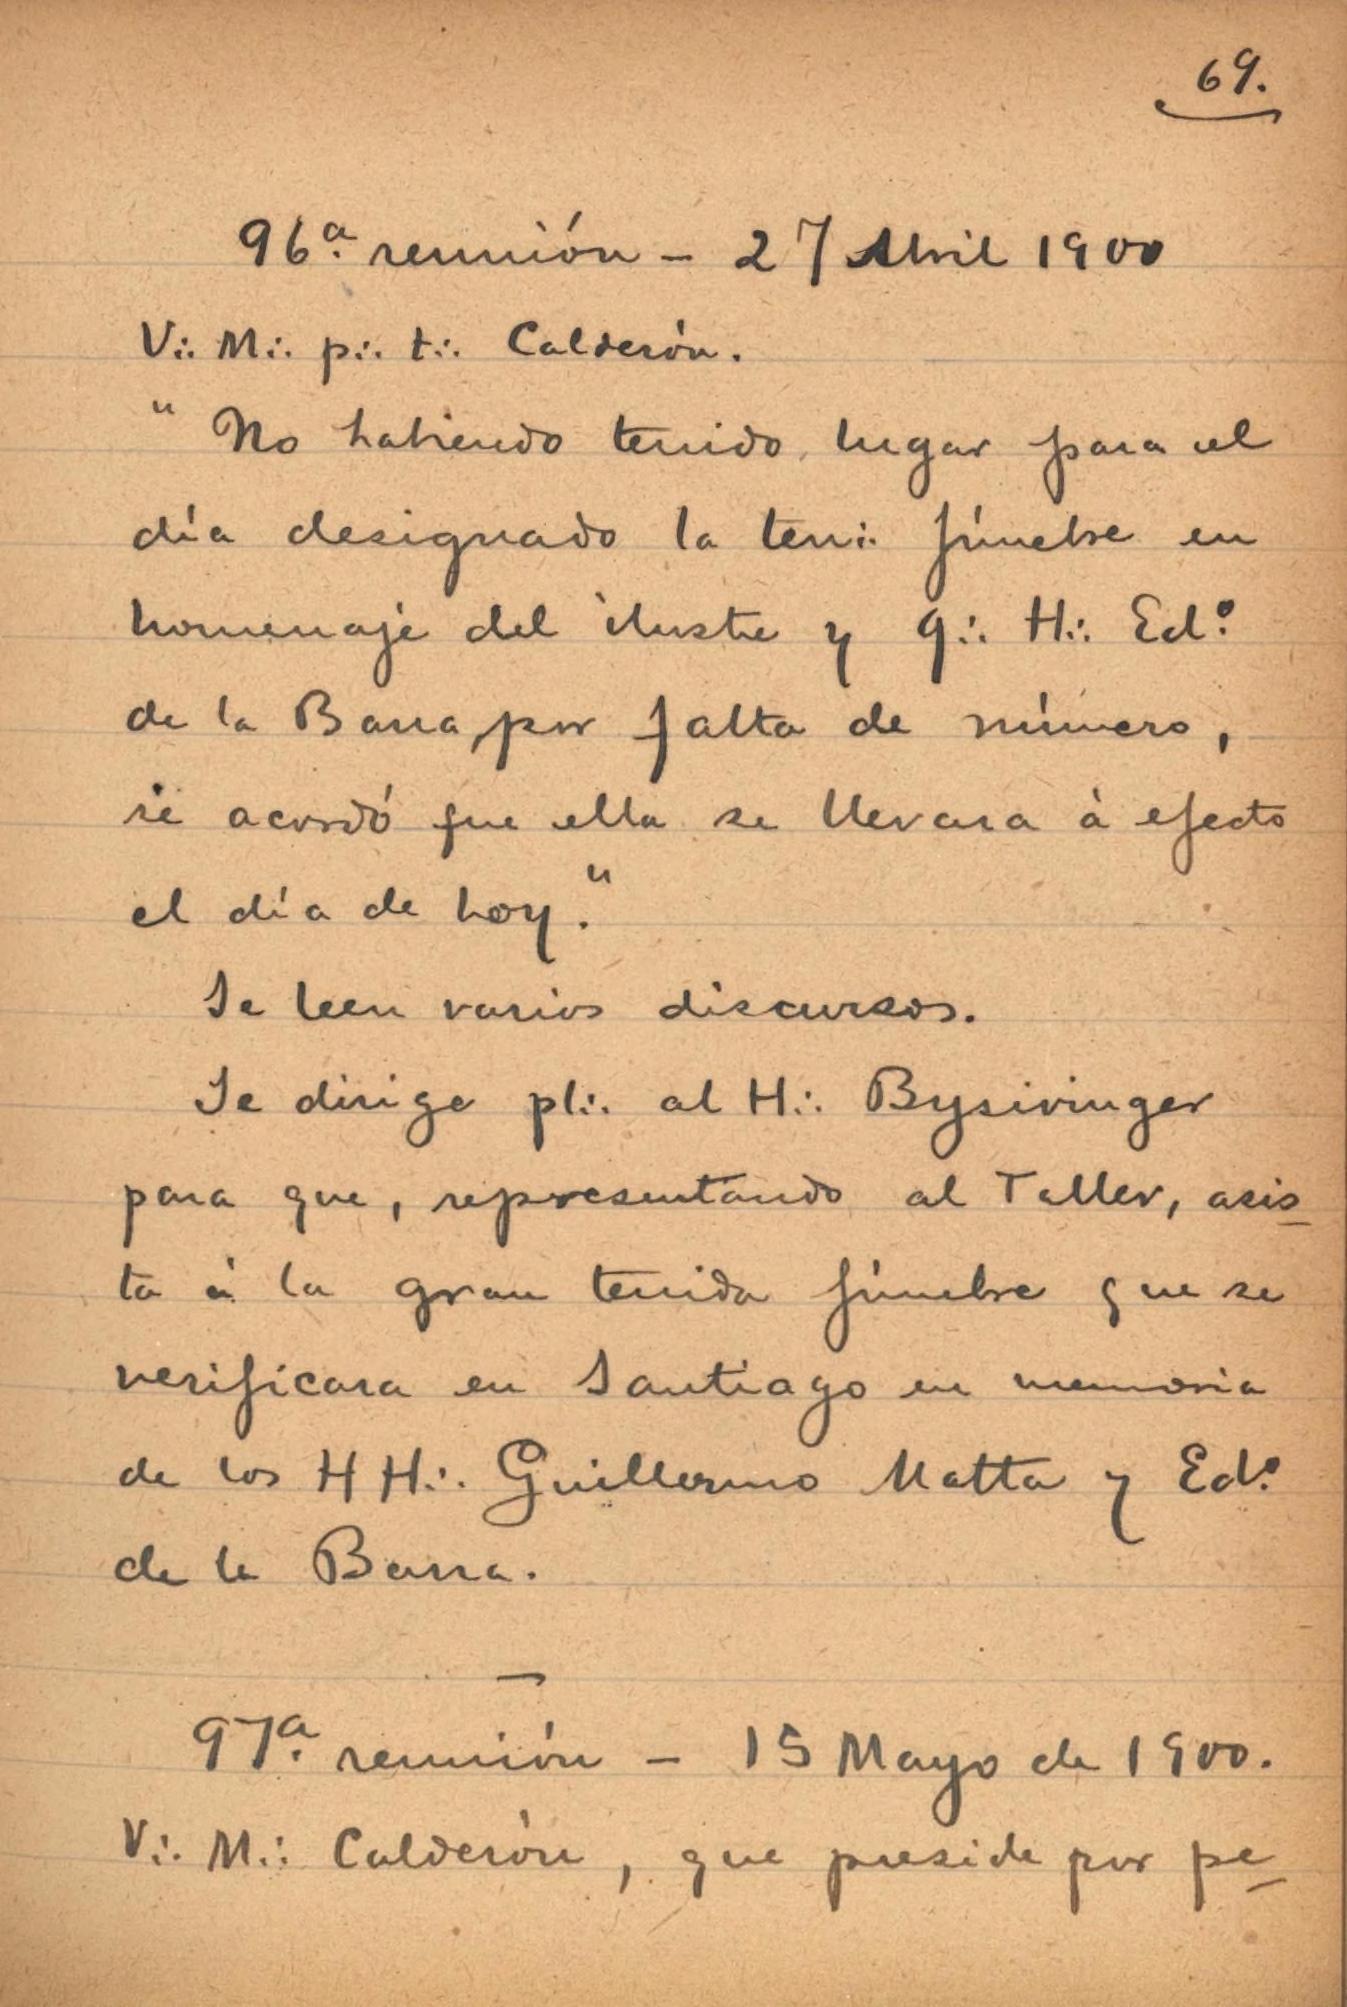 69.
96ª reunión - 27 Abril 1900
V∴ M∴ p∴ t∴ Calderón.
"No habiendo tenido lugar para el
día designado la ten∴ fúnebre en
homenaje del ilustre y q∴ H∴ Edº
de la Barra, por falta de número,
se acordó que ella se llevara á efecto
el día de hoy."
Se leen varios discursos.
Se dirige pl∴ al H∴ Bysivinger
para que, representando al Taller, asis-
ta á la gran tenida fúnebre que se
verificara en Santiago en memoria
de los HH∴ Guillermo Matta y Edº
de la Barra.
97ª reunión - 15 Mayo de 1900.
V∴ M∴ Calderón, que preside por pe-